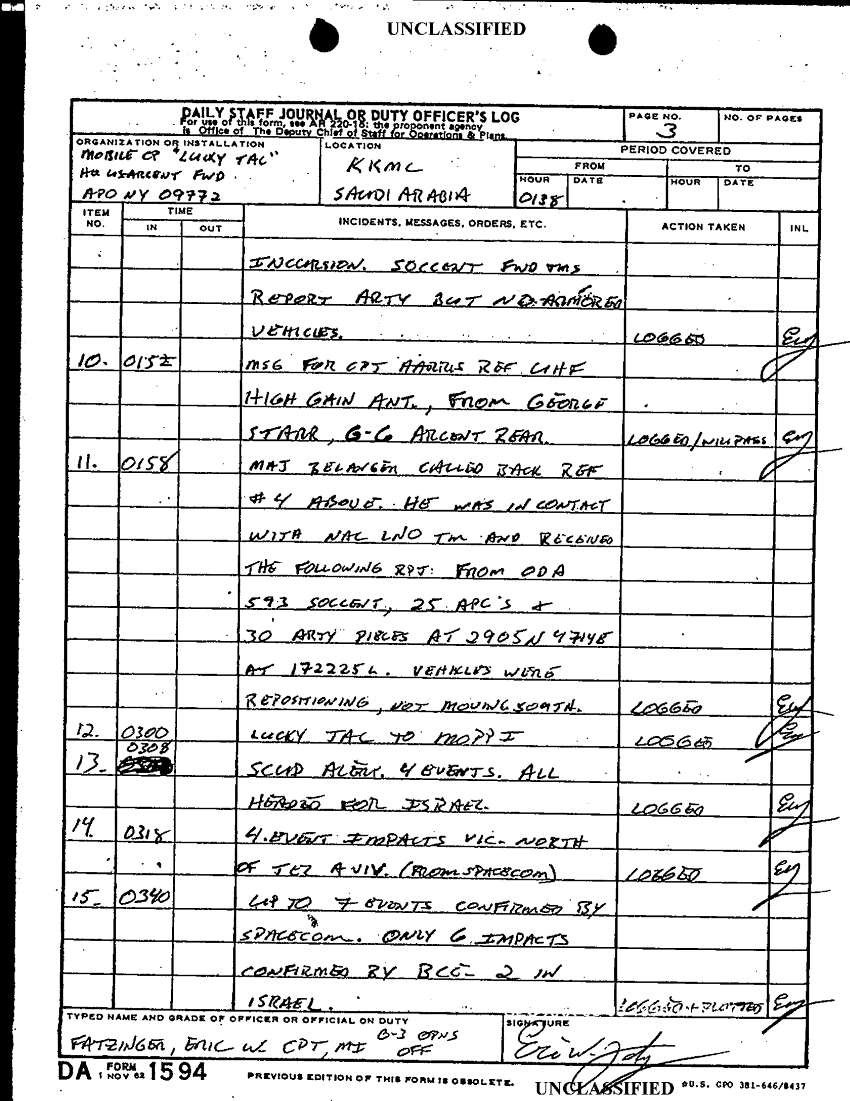 UNCLASSIFIED
DAILY STAFF JOURNAL OR DUTY OFFICER'S LOG
For use of this form, see AR 220-15; the proponent agency
is Office of The Deputy Chief of Staff for Operations & Plans.
PAGE NO.
3
NO. OF PAGES
ORGANIZATION OR INSTALLATION
MOBILE CP "LUCKY TAC"
HQ USARCENT FWD
APO NY 09772
LOCATION
KKMC
SAUDI ARABIA
PERIOD COVERED
FROM
TO
HOUR
DATE
HOUR
DATE
0138
ITEM NO.
TIME
IN
OUT
INCIDENTS, MESSAGES, ORDERS, ETC.
ACTION TAKEN
INL
INCURSION. SOCCENT FWD TMS
REPORT ARTY BUT NO ARMORED
VEHICLES. LOGGED
10. 0152 MSG FOR CPT HARRIS REF UHF
HIGH GAIN ANT., FROM GEORGE
STARR, G-6 ARCENT REAR. LOGGED/WILL PASS
11. 0158 MAJ BELANGER CALLED BACK REF
#4 ABOVE. HE WAS IN CONTACT
WITH NAC LNO TM AND RECEIVED
THE FOLLOWING RPT: FROM ODA
593 SOCCENT, 25 APC'S &
30 ARTY PIECES AT 2905N 4714E
AT 172225L. VEHICLES WERE
REPOSITIONING, NOT MOVING SOUTH. LOGGED
12. 0300 LUCKY TAC TO MOPP I LOGGED
13. 0308 SCUD ALERT. 4 EVENTS. ALL
HEADED FOR ISRAEL. LOGGED
14. 0318 4 EVENT IMPACTS VIC. NORTH
OF TEL AVIV. (FROM SPACECOM) LOGGED
15. 0340 UP TO 7 EVENTS CONFIRMED BY
SPACECOM. ONLY 6 IMPACTS
CONFIRMED BY BCE- 2 IN
ISRAEL. LOGGED + PLOTTED
TYPED NAME AND GRADE OF OFFICER OR OFFICIAL ON DUTY
FATZINGER, ERIC W. CPT, MI G-3 OPNS OFF
SIGNATURE
DA FORM 1 NOV 62 1594
PREVIOUS EDITION OF THIS FORM IS OBSOLETE.
UNCLASSIFIED
*U.S. GPO 381-646/8437